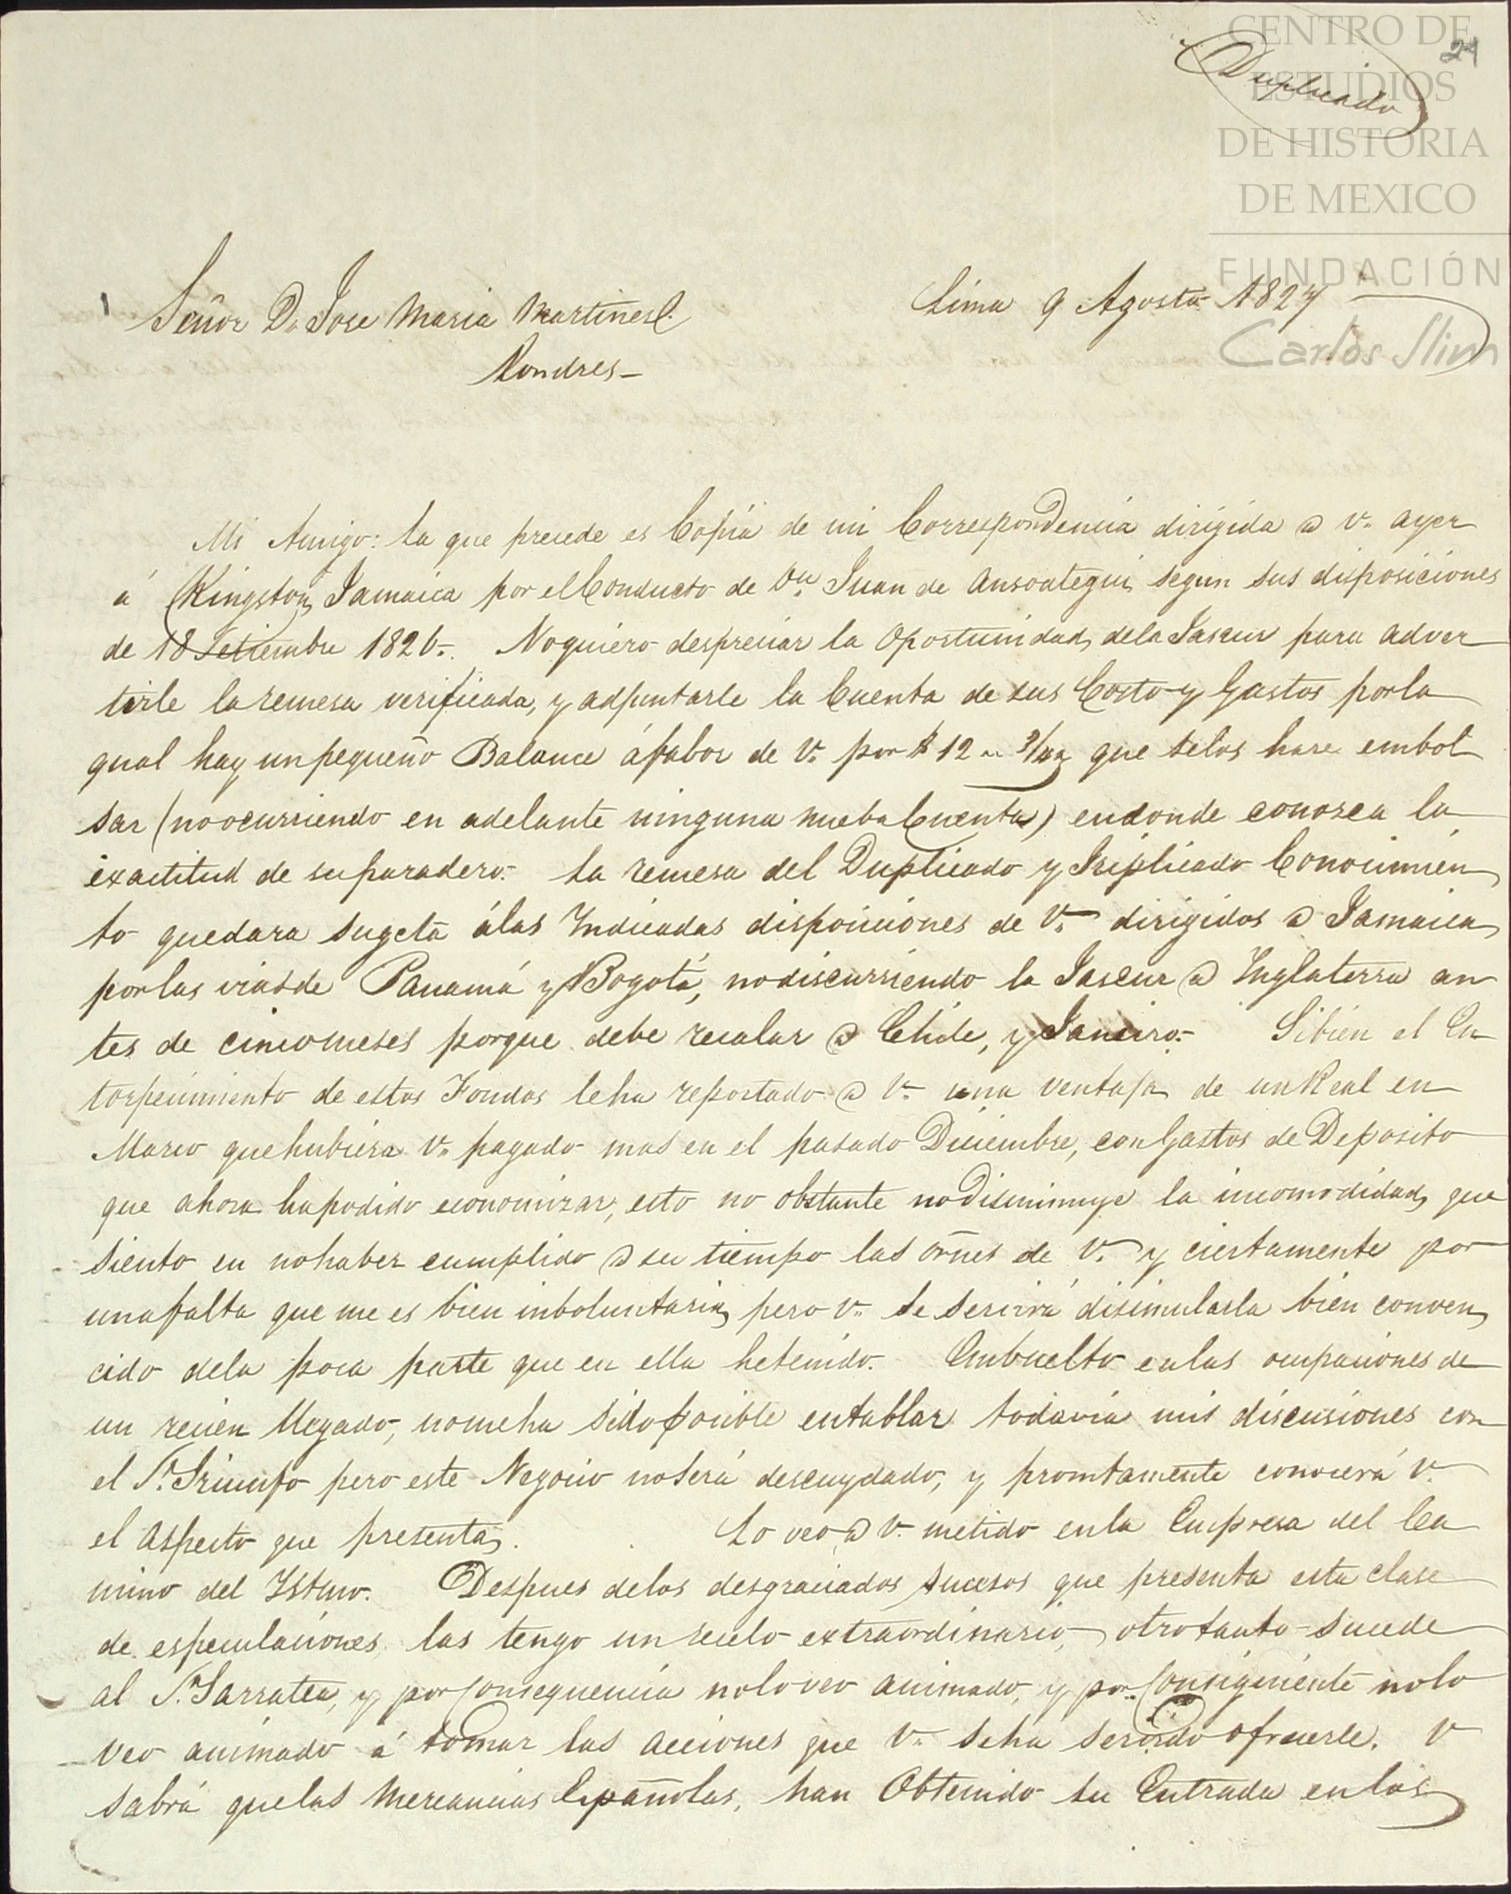 CENTRO DE
ESTUDIOS
DE HISTORIA
DE MEXICO
FUNDACIÓN
Carlos Slim
24
Duplicado
Lima 9 Agosto 1827
Señor D. Jose Maria Martines
Londres
Mi Amigo: La que precede es Copia de mi Correspondencia dirigida a V. ayer
á Kingston Jamaica por el Conducto de Dn Juan de Ansoategui, segun sus disposiciones
de 18 Setiembre 1826. No quiero despreciar la Oportunidad de la Taseur para adver
tirle la remesa verificada, y adjuntarle la Cuenta de sus Costo y Gastos por la
qual hay un pequeño Balance á fabor de V. por $ 12 que selos hare embol
sar (no ocurriendo en adelante ninguna nueba Cuenta) en donde conosca la
exactitud de su paradero. La remesa del Duplicado y Triplicado Conocimien
to quedara sugeta á las Indicadas disposiciones de V. dirigidos a Jamaica
por las vias de Panamá y Bogotá, no discurriendo la Taseur a Inglaterra an
tes de cinco meses porque debe recalar a Chile, y Janeiro. Si bien el En
torpecimiento de estos Fondos le ha reportado a V. una ventaja de un Real en
Marco que hubiera V. pagado mas en el pasado Diciembre, con Gastos de Deposito
que ahora ha podido economizar, esto no obstante no Disminuye la incomodidad que
siento en no haber cumplido a su tiempo las orñes de V. y ciertamente por
una falta que me es bien inboluntaria, pero V. se servirá disimularla bien conven
cido de la poca parte que en ella he tenido. Enbuelto en las ocupaciones de
un recien llegado, no me ha sido posible entablar todavia mis discusiones con
el Sr. Triunfo pero este Negocio no será descuydado, y promtamente conocerá V.
el aspecto que presenta. Lo veo a V. metido en la Empresa del Ca
mino del Istmo. Despues de los desgraciados sucesos que presenta esta clase
de especulaciones, las tengo un recelo extraordinario, otro tanto sucede
al Sr. Sarratea, y por Consequencia no lo veo animado, y por Consiguiente no lo
veo animado á tomar las acciones que V. se ha servido ofrecerle. V
sabrá que las Mercancias Españolas, han Obtenido su Entrada en los